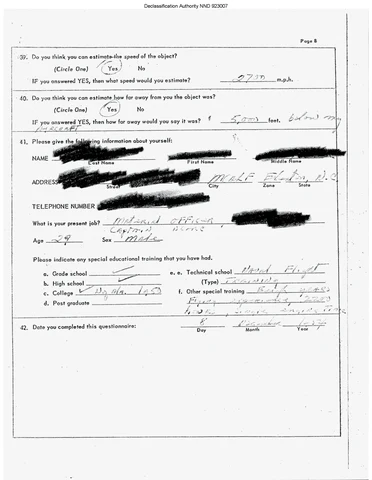 Declassification Authority NND 923007
Page 8
39. Do you think you can estimate the speed of the object?
(Circle One) Yes No
IF you answered YES, then what speed would you estimate? 2700 m.p.h.
40. Do you think you can estimate how far away from you the object was?
(Circle One) Yes No
IF you answered YES, then how far away would you say it was? 5,000 feet. below my
Aircraft
41. Please give the following information about yourself:
NAME
Last Name First Name Middle Name
ADDRESS N.C.
Street City Zone State
TELEPHONE NUMBER
What is your present job? Material Officer
Captain
Age 29 Sex Male
Please indicate any special educational training that you have had.
a. Grade school e. Technical school Flight
b. High school (Type) Training
c. College f. Other special training
d. Post graduate Flying experience, 2200
hours, single engine time
42. Date you completed this questionnaire: 8 December
Day Month Year